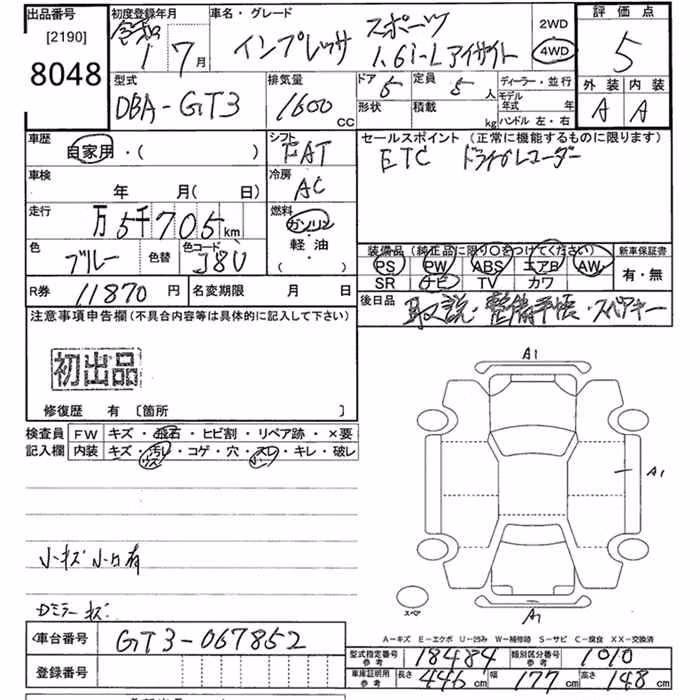 出品番号
[2190]
8048
初度登録年月
令和
1 7月
車名・グレード
インプレッサ スポーツ
1.6i-Lアイサイト
2WD
4WD
評価点
5
外装 内装
A A
型式
DBA-GT3
排気量
1600 CC
ドア 5
定員 5人
形状
積載 kg
ディーラー・並行
モデル年式 年
ハンドル 左・右
車歴
自家用・( )
シフト
FAT
セールスポイント(正常に機能するものに限ります)
ETC ドライブレコーダー
車検
年 月(日)
冷房
AC
走行
万5千705km
燃料
ガソリン
・
軽油
・
( )
色
ブルー
色替
色コード
J8U
装備品(純正品に限り○をつけてください)
PS PW ABS エアB AW
SR ナビ TV カワ
新車保証書
有・無
R券 11870円
名変期限 月 日
後日品
取説・整備手帳・スペアキー
注意事項申告欄(不具合内容等は具体的に記入して下さい)
初出品
修復歴 有 [箇所 ]
検査員記入欄
FW キズ・飛石・ヒビ割・リペア跡・×要
内装 キズ・汚レ・コゲ・穴・スレ・キレ・破レ
A1
A1
A1
スペア
小キズ 小凹有
Dミラーキズ
A-キズ E-エクボ U-凹み W-補修跡 S-サビ C-腐食 XX-交換済
車台番号 GT3-067852
登録番号
型式指定番号 参考 18484
類別区分番号 参考 1010
車庫証明用 参考 長さ 446cm 幅 177cm 高さ 148cm